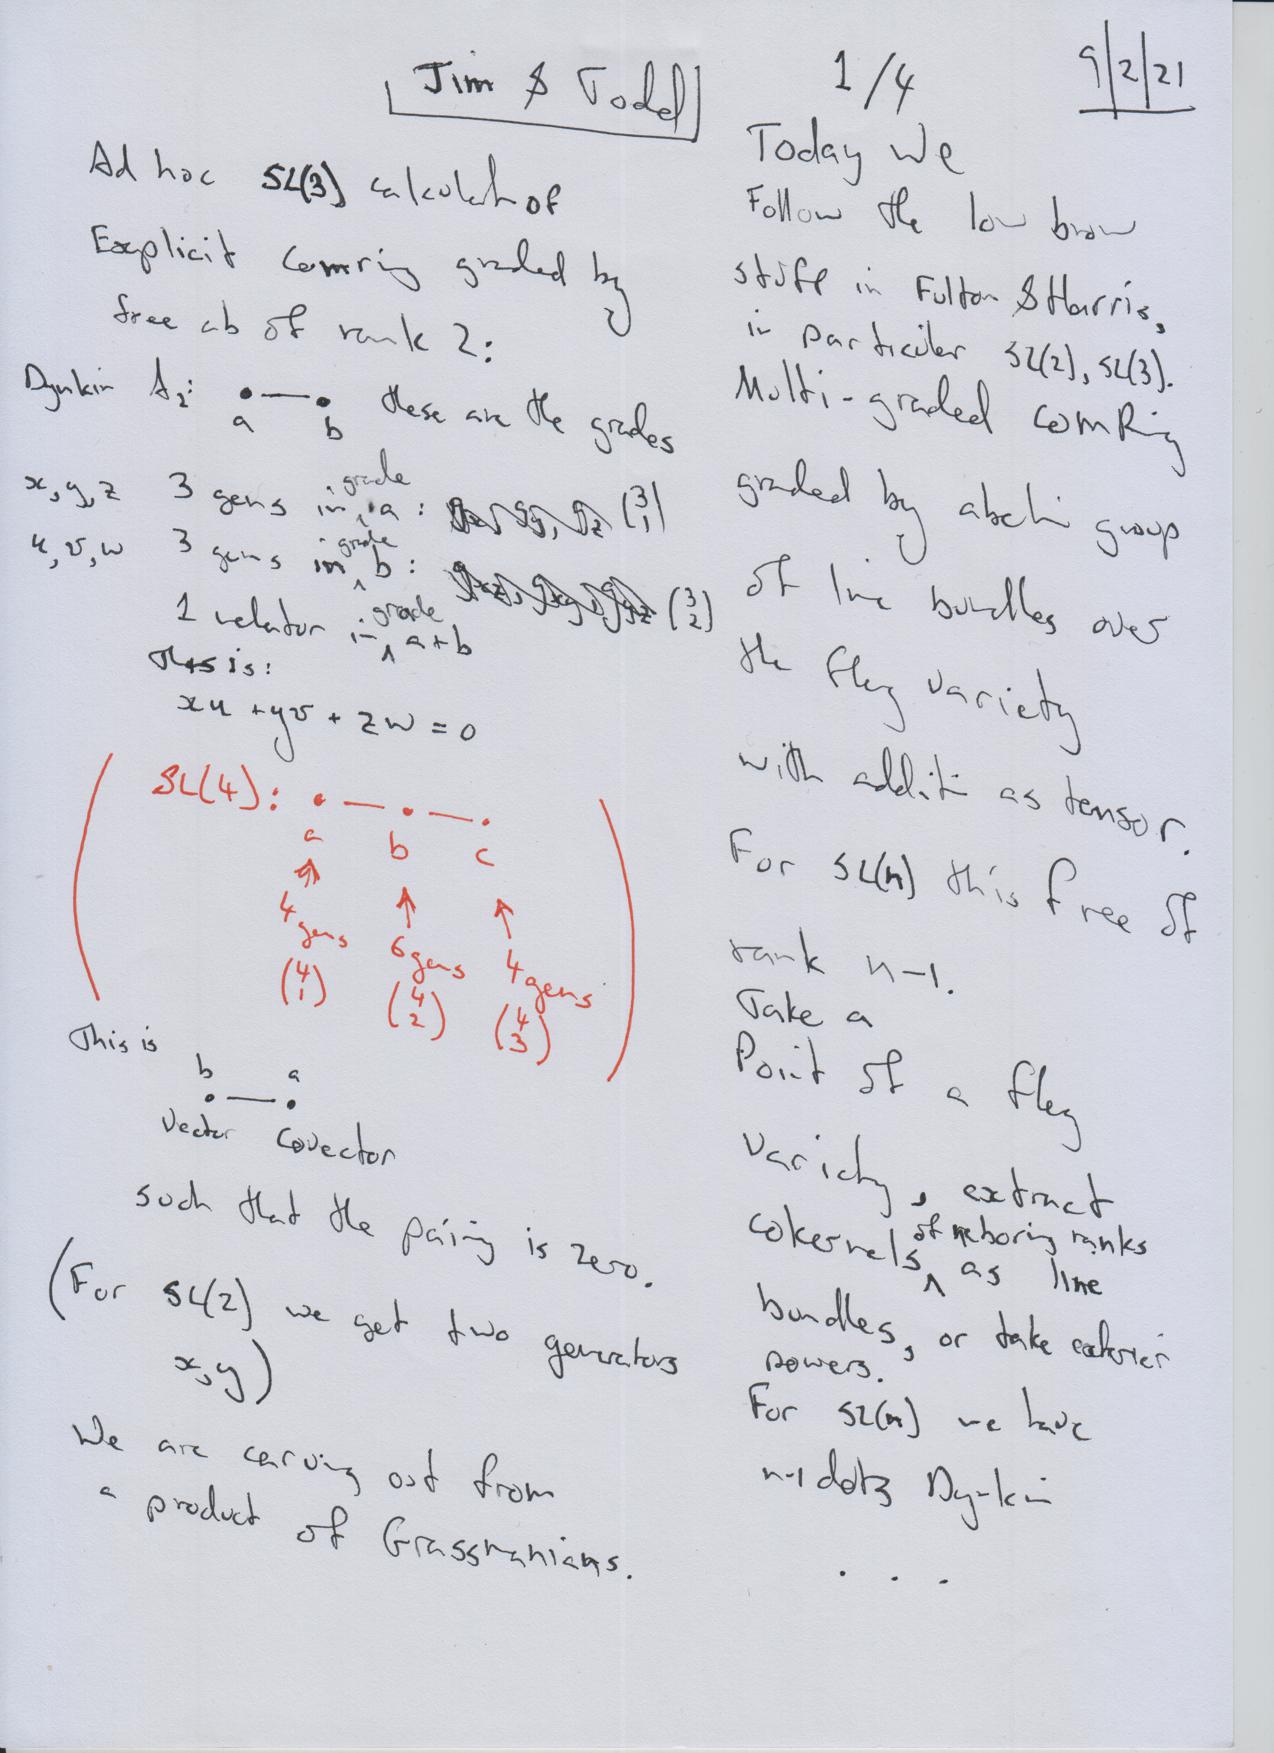 Jim & Todd
1/4
9/2/21
Ad hoc SL(3) calculatn of
Explicit Comring graded by
free ab of rank 2:
Dynkin A₂: • — • these are the grades
a b
x, y, z 3 gens in grade a: (3 1)
u, v, w 3 gens in grade b: (3 2)
1 relator in grade a+b
This is:
xu + yv + zw = 0
SL(4): • — • — •
a b c
4 gens 6 gens 4 gens
(4 1) (4 2) (4 3)
This is
b a
• — •
Vector Covector
such that the pairing is zero.
(For SL(2) we get two generators
x, y)
We are carving out from
a product of Grassmanians.
Today We
Follow the low brow
stuff in Fulton & Harris,
in particular SL(2), SL(3).
Multi-graded ComRing
graded by abelin group
of line bundles over
the flag variety
with additn as tensor.
For SL(n) this free of
rank n-1.
Take a
Point of a flag
variety, extract
cokernels of neboring ranks as line
bundles, or take exterier
powers.
For SL(n) we have
n-1 dots Dynkin
. . .